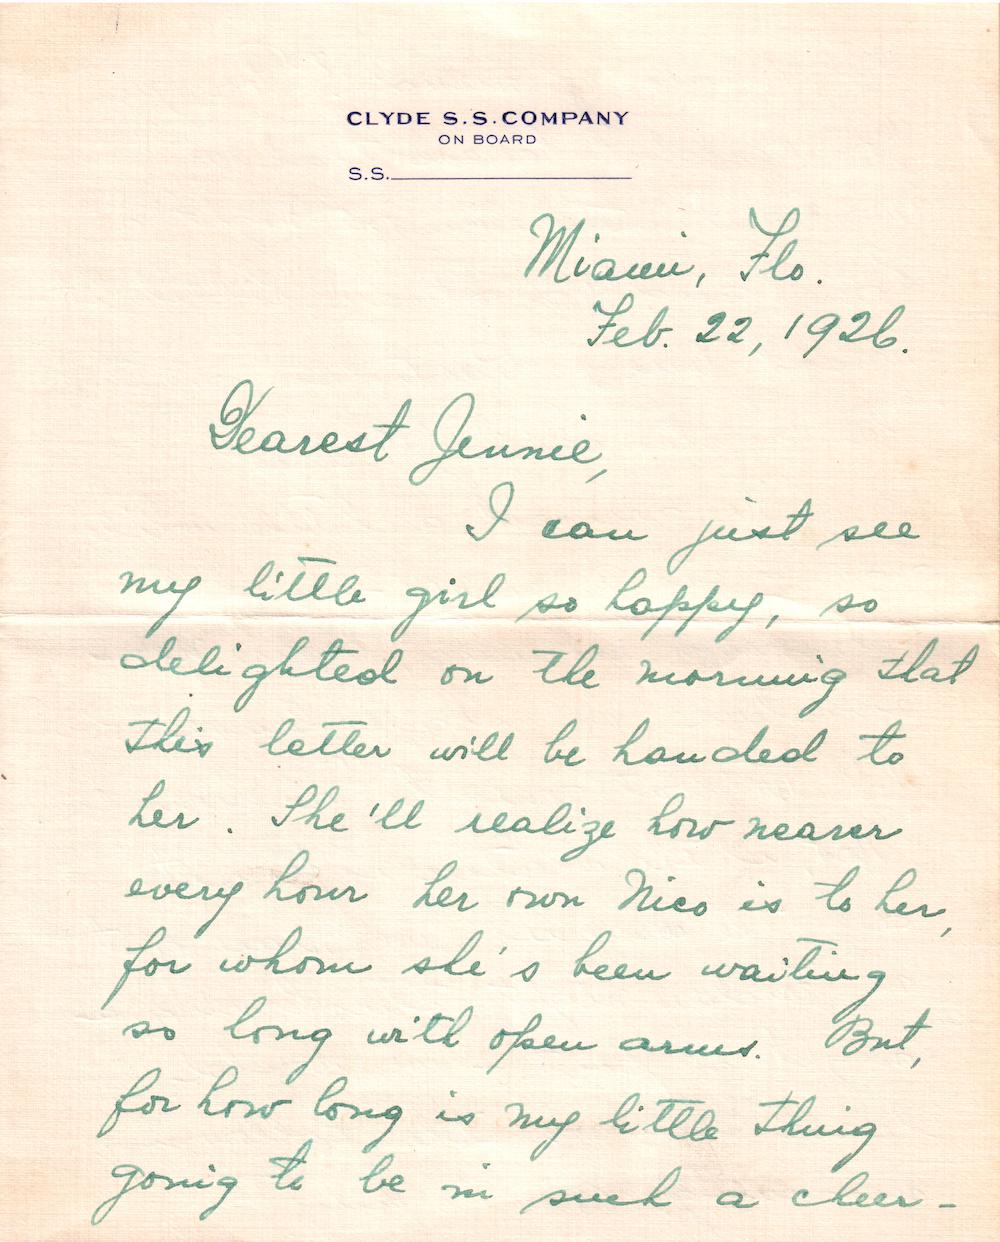 CLYDE S.S. COMPANY
ON BOARD
S.S.
Miami, Flo.
Feb. 22, 1926.
Dearest Jennie,
I can just see
my little girl so happy, so
delighted on the morning that
this letter will be handed to
her. She'll realize how nearer
every hour her own Nico is to her,
for whom she's been waiting
so long with open arms. But,
for how long is my little thing
going to be in such a cheer-